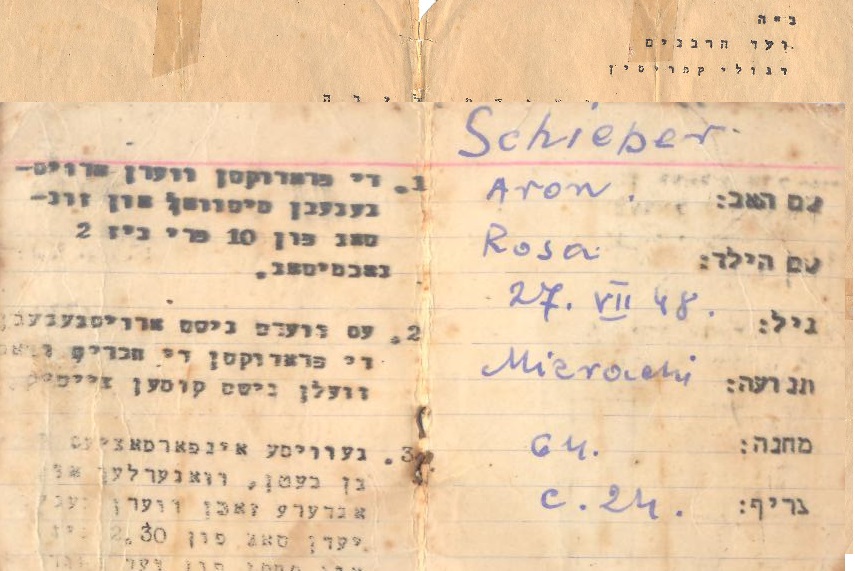 ב"ה
ועד הרבנים
דגולי קפריסין
Schieber
שם האב: Aron.
שם הילד: Rosa
גיל: 27. VII 48.
תנועה: Misrachi
מחנה: 64.
צריף: C. 24.
1. די פראדוקטן ווערן ארויס-
געגעבן מיטוואך און זונ-
טאג פון 10 פרי ביז 2
נאכמיטאג.
2. עס ווערט ניסט ארויסגעגעבן
די פראדוקטן די חברים וואס
וועלן ניסט קומען
3. געוויסע אינפארמאציעס
בעטן, וואגערלעך
אנדערע זאכן ווערן
יעדן טאג פון 2.30 ביז